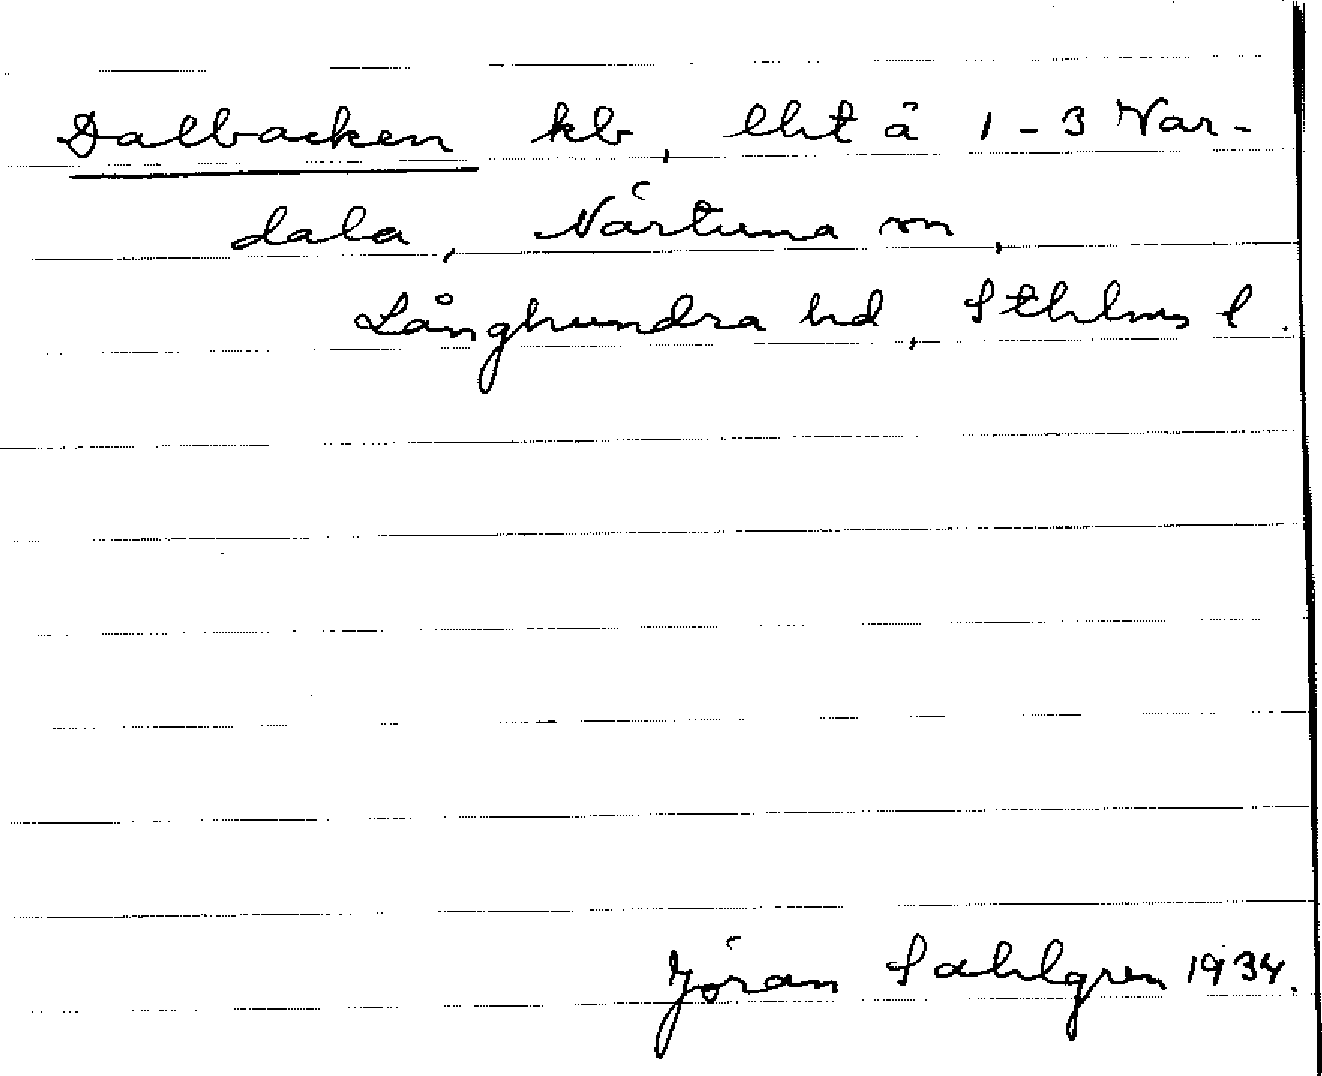 Dalbacken kb, lht å 1-3 Var-
dala, Närtuna sn,
Långhundra hd, Sthlms l.
Jöran Sahlgren 1934.